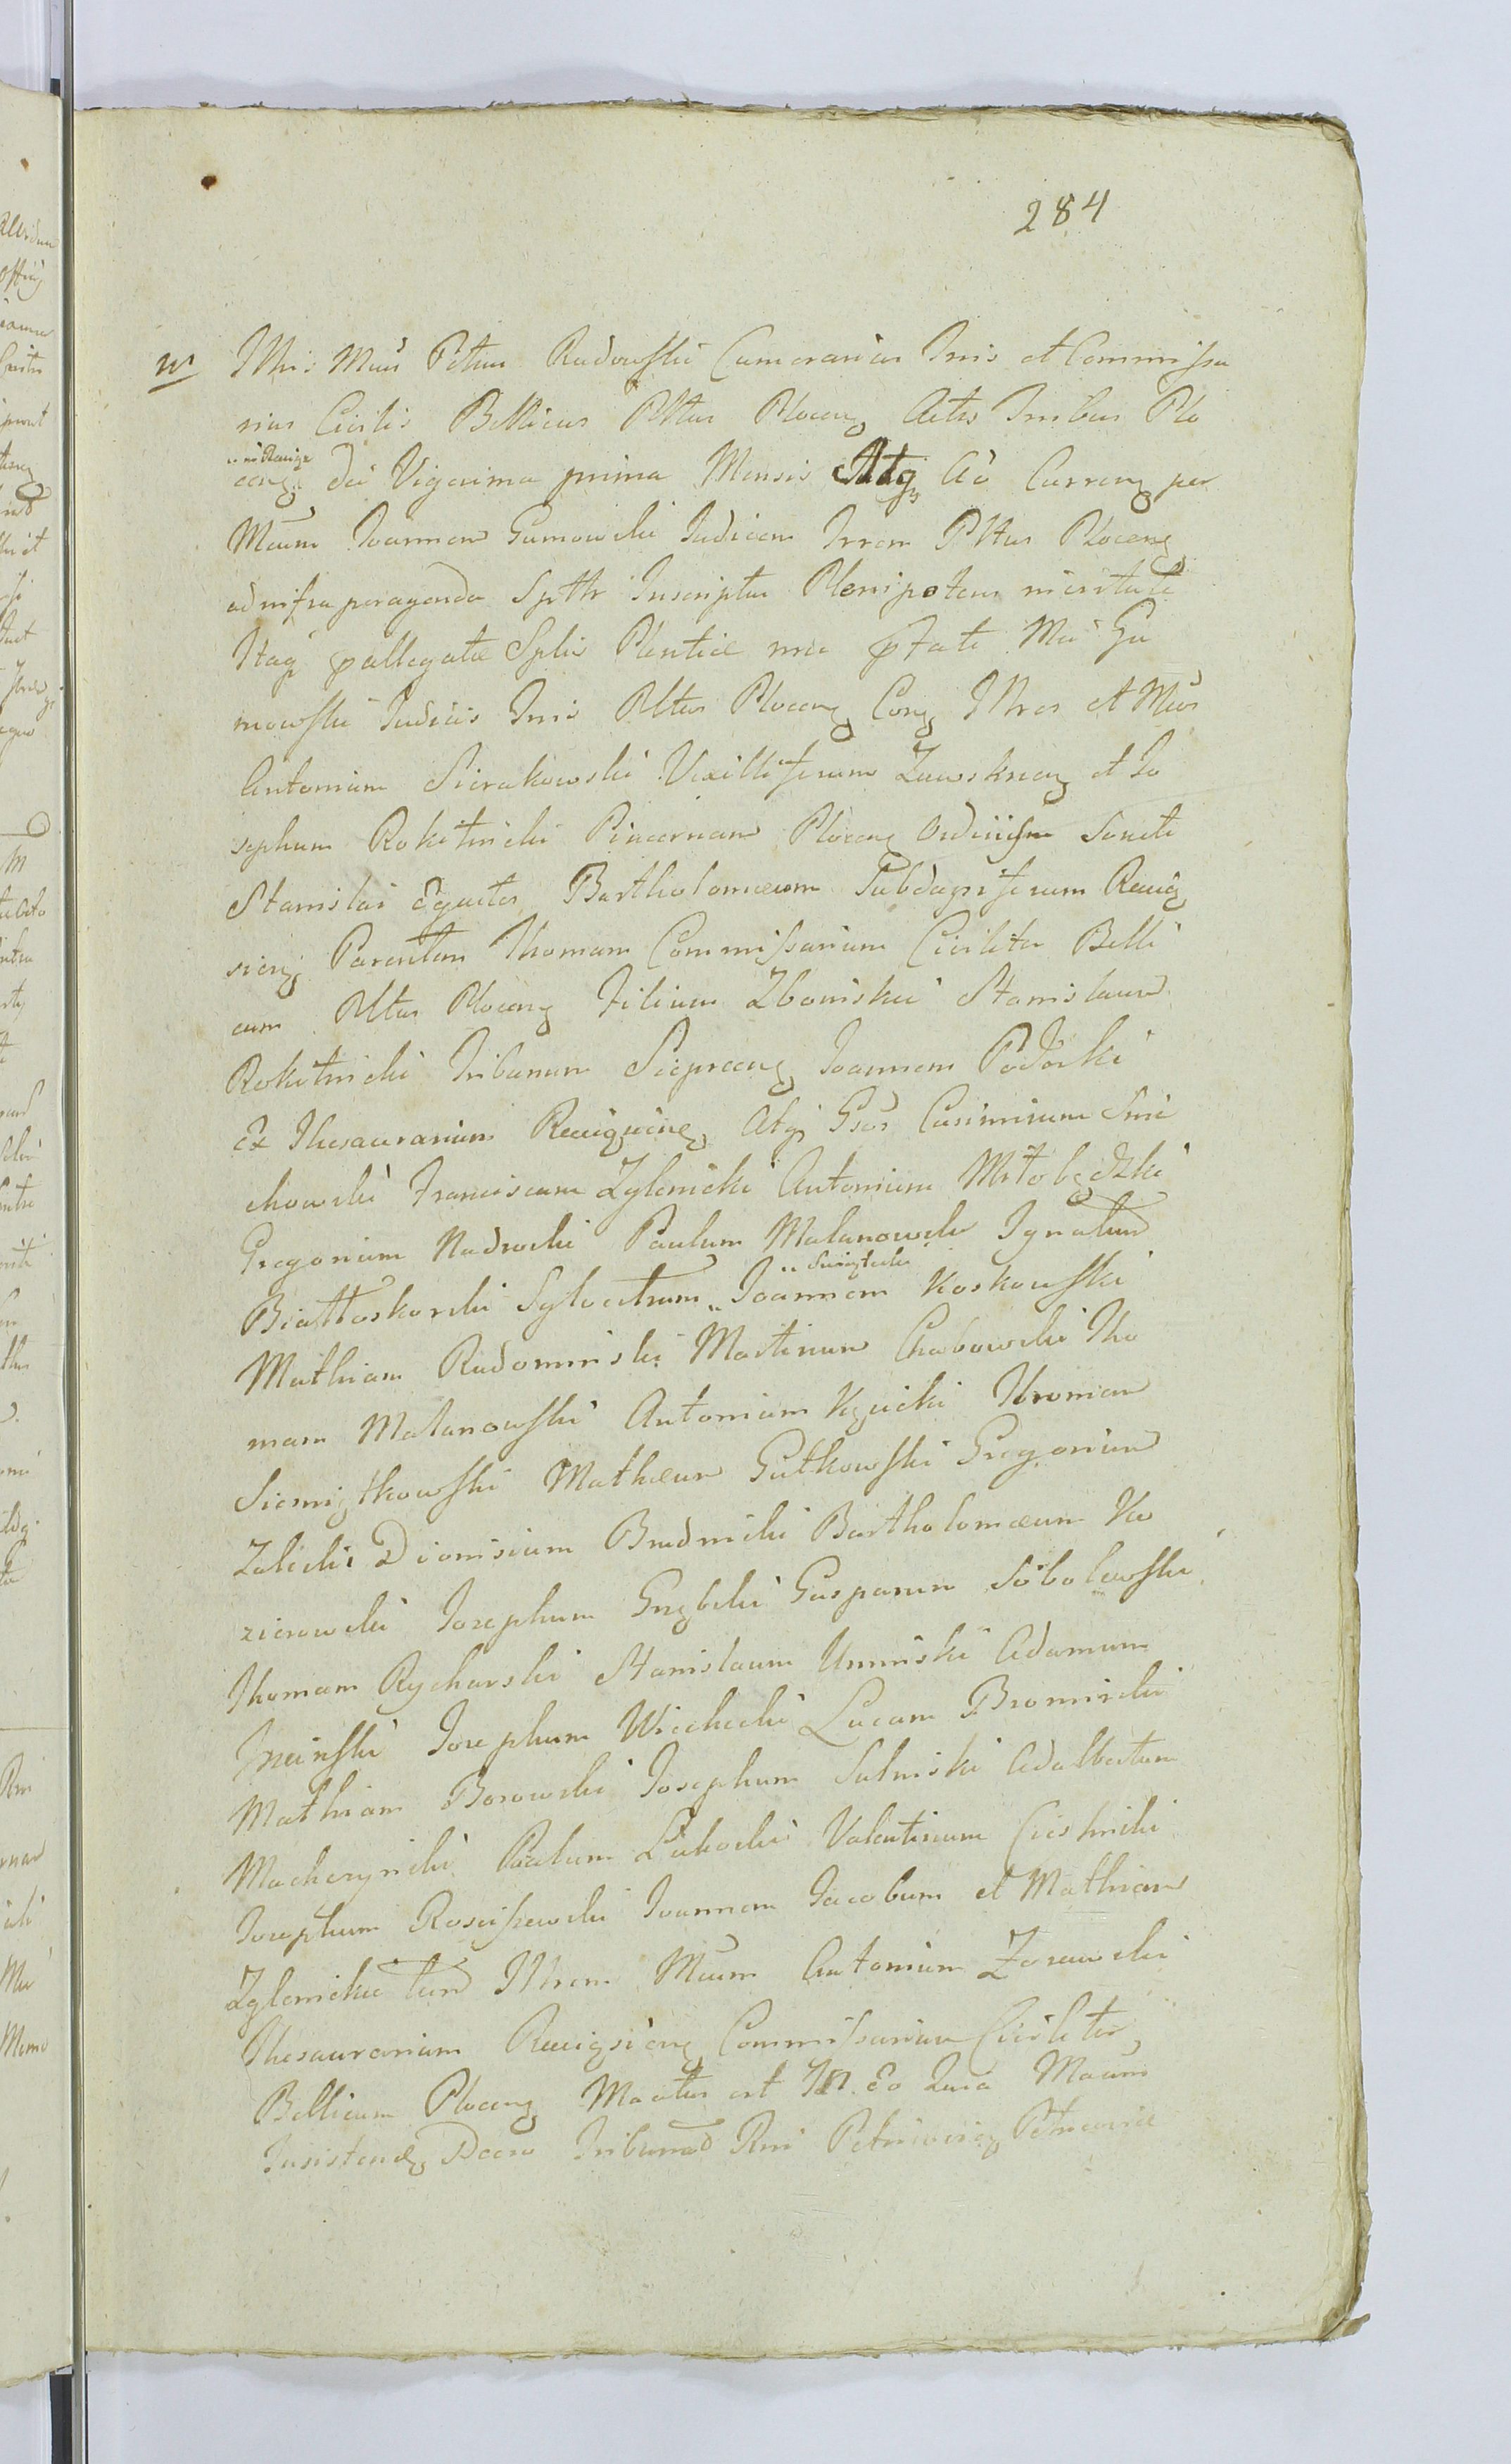 284
Mus Petrus Radowski Camerarius Tris et Commissa
rius Civilis Bellicus Pltus Plocens Actis Tribus Plo
cens die Vigesima prima Mensis Aò Currens per
Mcum Joannem Gumowski Judicem Trrem Pltus Plocens
ad infra peragenda Spthr Inscriptus Plenipotens
Itaq Splis Mci Gu
mowski Judicis Tris Pltus Plocens Cons Illres et Mcos
Antonium Sierakowski Vexilliferum Zawskrens et Jo
sephum Rokitnicki Pincernam Plocens Sancti
Stanislai Equites Bartholomæum Subdapiferum Raciąz
siens Parentem Thomam Commissarium Civiliter Belli
cum Pltus Plocens Filium Zboinskie Stanislaum
Rokitnicki Tribunum Sieprcens Joannem Podoski
Ex Thesaurarium Raciązsiens Atq Gsos Casimirum Smie
chowski Franciscum Zglenicki Antonium Młobędzki
Gregorium Nadrocki Paulum Malanowski Ignatium
Białłoskorski Sylvestrum Joannem Koskowski
Mathiam Radominski Martinum Chabowski Tho
mam Malanowski Antonium Kęsicki
Siemiątkowski Mathæum Gutkowski Gregorium
Zaliski Dionisium Brudnicki Bartholomæum Ko
zierowski Josephum Grębski Gasparum Sobolewski
Thomam Rycharski Stanislaum Uminski Adamum
Josephum Wichicki Lucam Bromirski
Mathiam Borowski Josephum Sulmiski Adalbertum
Machczynski Paulum Lukoski Valentinum Ciesłinski
Josephum Rosciszewski Joannem Jacobum et Mathiam
Zglenickie tum Illrem Mcum Antonium Zorawski
Thesaurarium Raciązsiens Commissarium Civiliter
Bellicum Plocens est In Eo Quia Mcum
Insistens Decro Tribunad Rni Petricovien